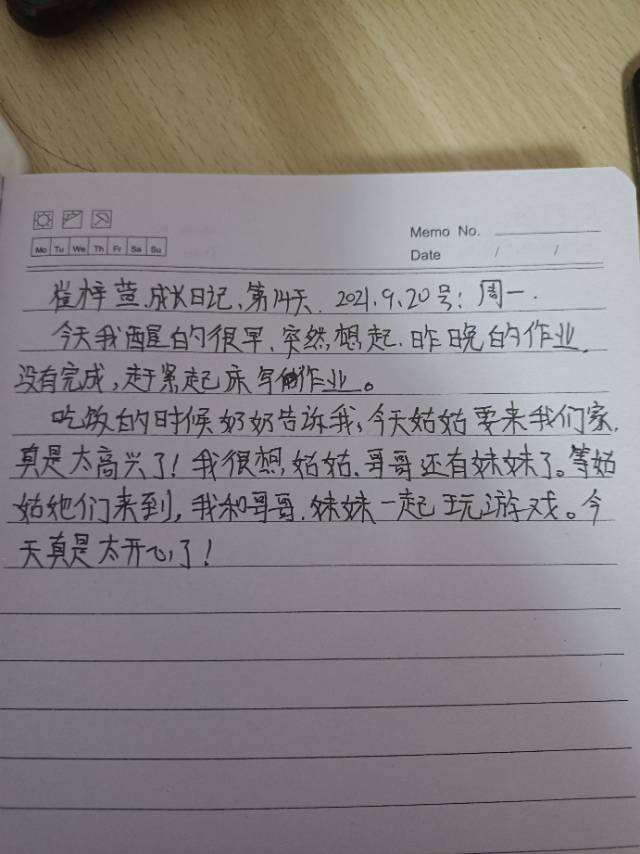 Memo No.
Mo Tu We Th Fr Sa Su
Date / /
崔梓萱.成长日记,第14天. 2021.9.20号:周一.
今天我醒的很早.突然想起.昨晚的作业.
没有完成,赶紧起床写作业。
吃饭的时候奶奶告诉我,今天姑姑要来我们家.
真是太高兴了!我很想,姑姑.哥哥还有妹妹了。等姑
姑他们来到,我和哥哥.妹妹一起玩游戏。今
天真是太开心了!